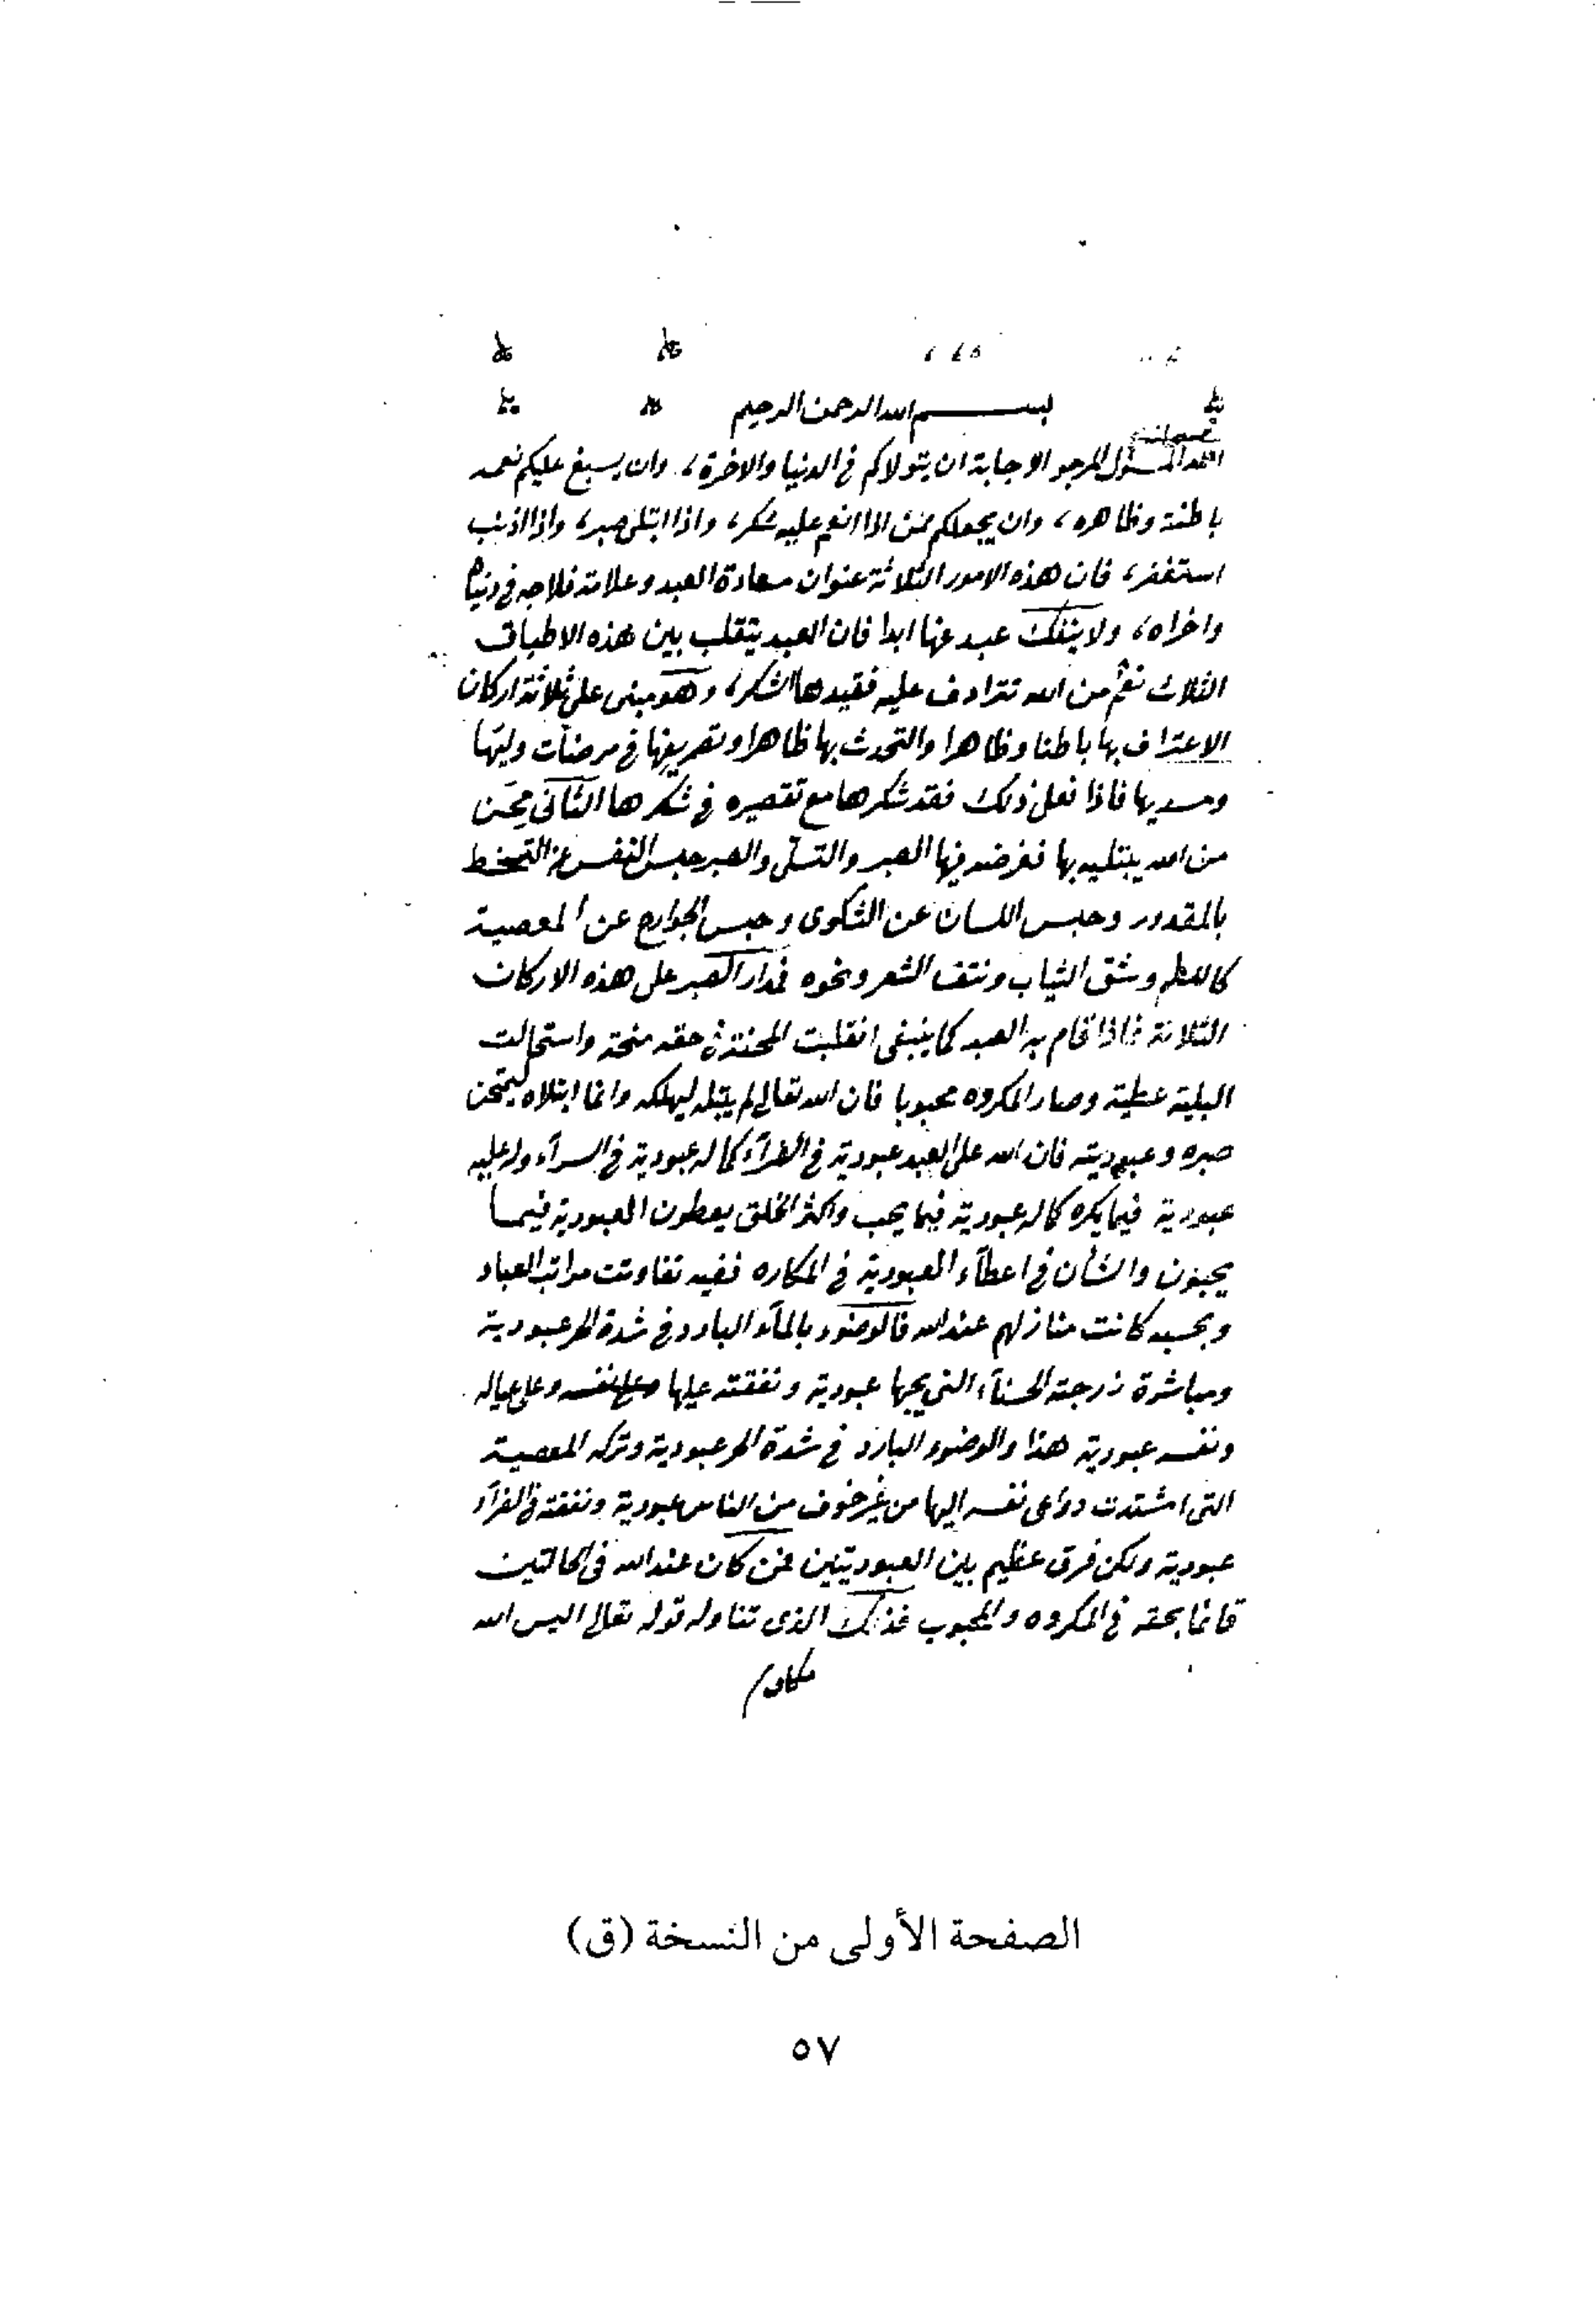 بسم الله الرحمن الرحيم
الله المسئول المرجو الاجابة ان يتولاكم في الدنيا والاخرة، وان يسبغ عليكم نعمه
باطنة وظاهره، وان يجعلكم ممن اذا انعم عليه شكر، واذا ابتلى صبر، واذا اذنب
استغفر، فان هذه الامور الثلاثة عنوان سعادة العبد وعلامة فلاحه في دنياه
واخراه، ولا ينفك عبد عنها ابدا فان العبد يتقلب بين هذه الاطباق
الثلاث نعم من الله تترادف عليه فقيدها الشكر، وهو مبنى على ثلاثة اركان
الاعتراف بها باطنا وظاهرا والتحدث بها ظاهرا وتصريفها في مرضات وليها
ومسديها فاذا فعل ذلك فقد شكرها مع تقصيره في شكرها الثانى محن
من الله يبتليه بها ففرضه فيها الصبر والتسلى والصبر حبس النفس عن التسخط
بالمقدور وحبس اللسان عن الشكوى وحبس الجوارح عن المعصية
كاللطم وشق الثياب ونتف الشعر ونحوه فمدار الصبر على هذه الاركان
الثلاثة فاذا قام به العبد كما ينبغى انقلبت المحنة في حقه منحة واستحالت
البلية عطية وصار المكروه محبوبا فان الله تعالى لم يبتله ليهلكه وانما ابتلاه ليمتحن
صبره وعبوديته فان لله على العبد عبودية في الضرآء كما له عبودية في السرآء وله عليه
عبودية فيما يكره كما له عبودية فيما يحب واكثر الخلق يعطون العبودية فيما
يحبون والشأن في اعطآء العبودية في المكاره ففيه تفاوتت مراتب العباد
وبحسبه كانت منازلهم عند الله فالوضوء بالمآء البارد في شدة الحر عبودية
ومباشرة زوجته الحسنآء التي يحبها عبودية ونفقته عليها وعلى نفسه وعلى عياله
ونفسه عبودية هذا والوضوء البارد في شدة الحر عبودية وتركه المعصية
التى اشتدت دواعى نفسه اليها من غير خوف من الناس عبودية ونفقته في الضرآء
عبودية ولكن فرق عظيم بين العبوديتين فمن كان عند الله في الحالتين
قائما بحقه في المكروه والمحبوب فذلك الذى تناوله قوله تعالى اليس الله
بكاف
الصفحة الأولى من النسخة (ق)
٥٧